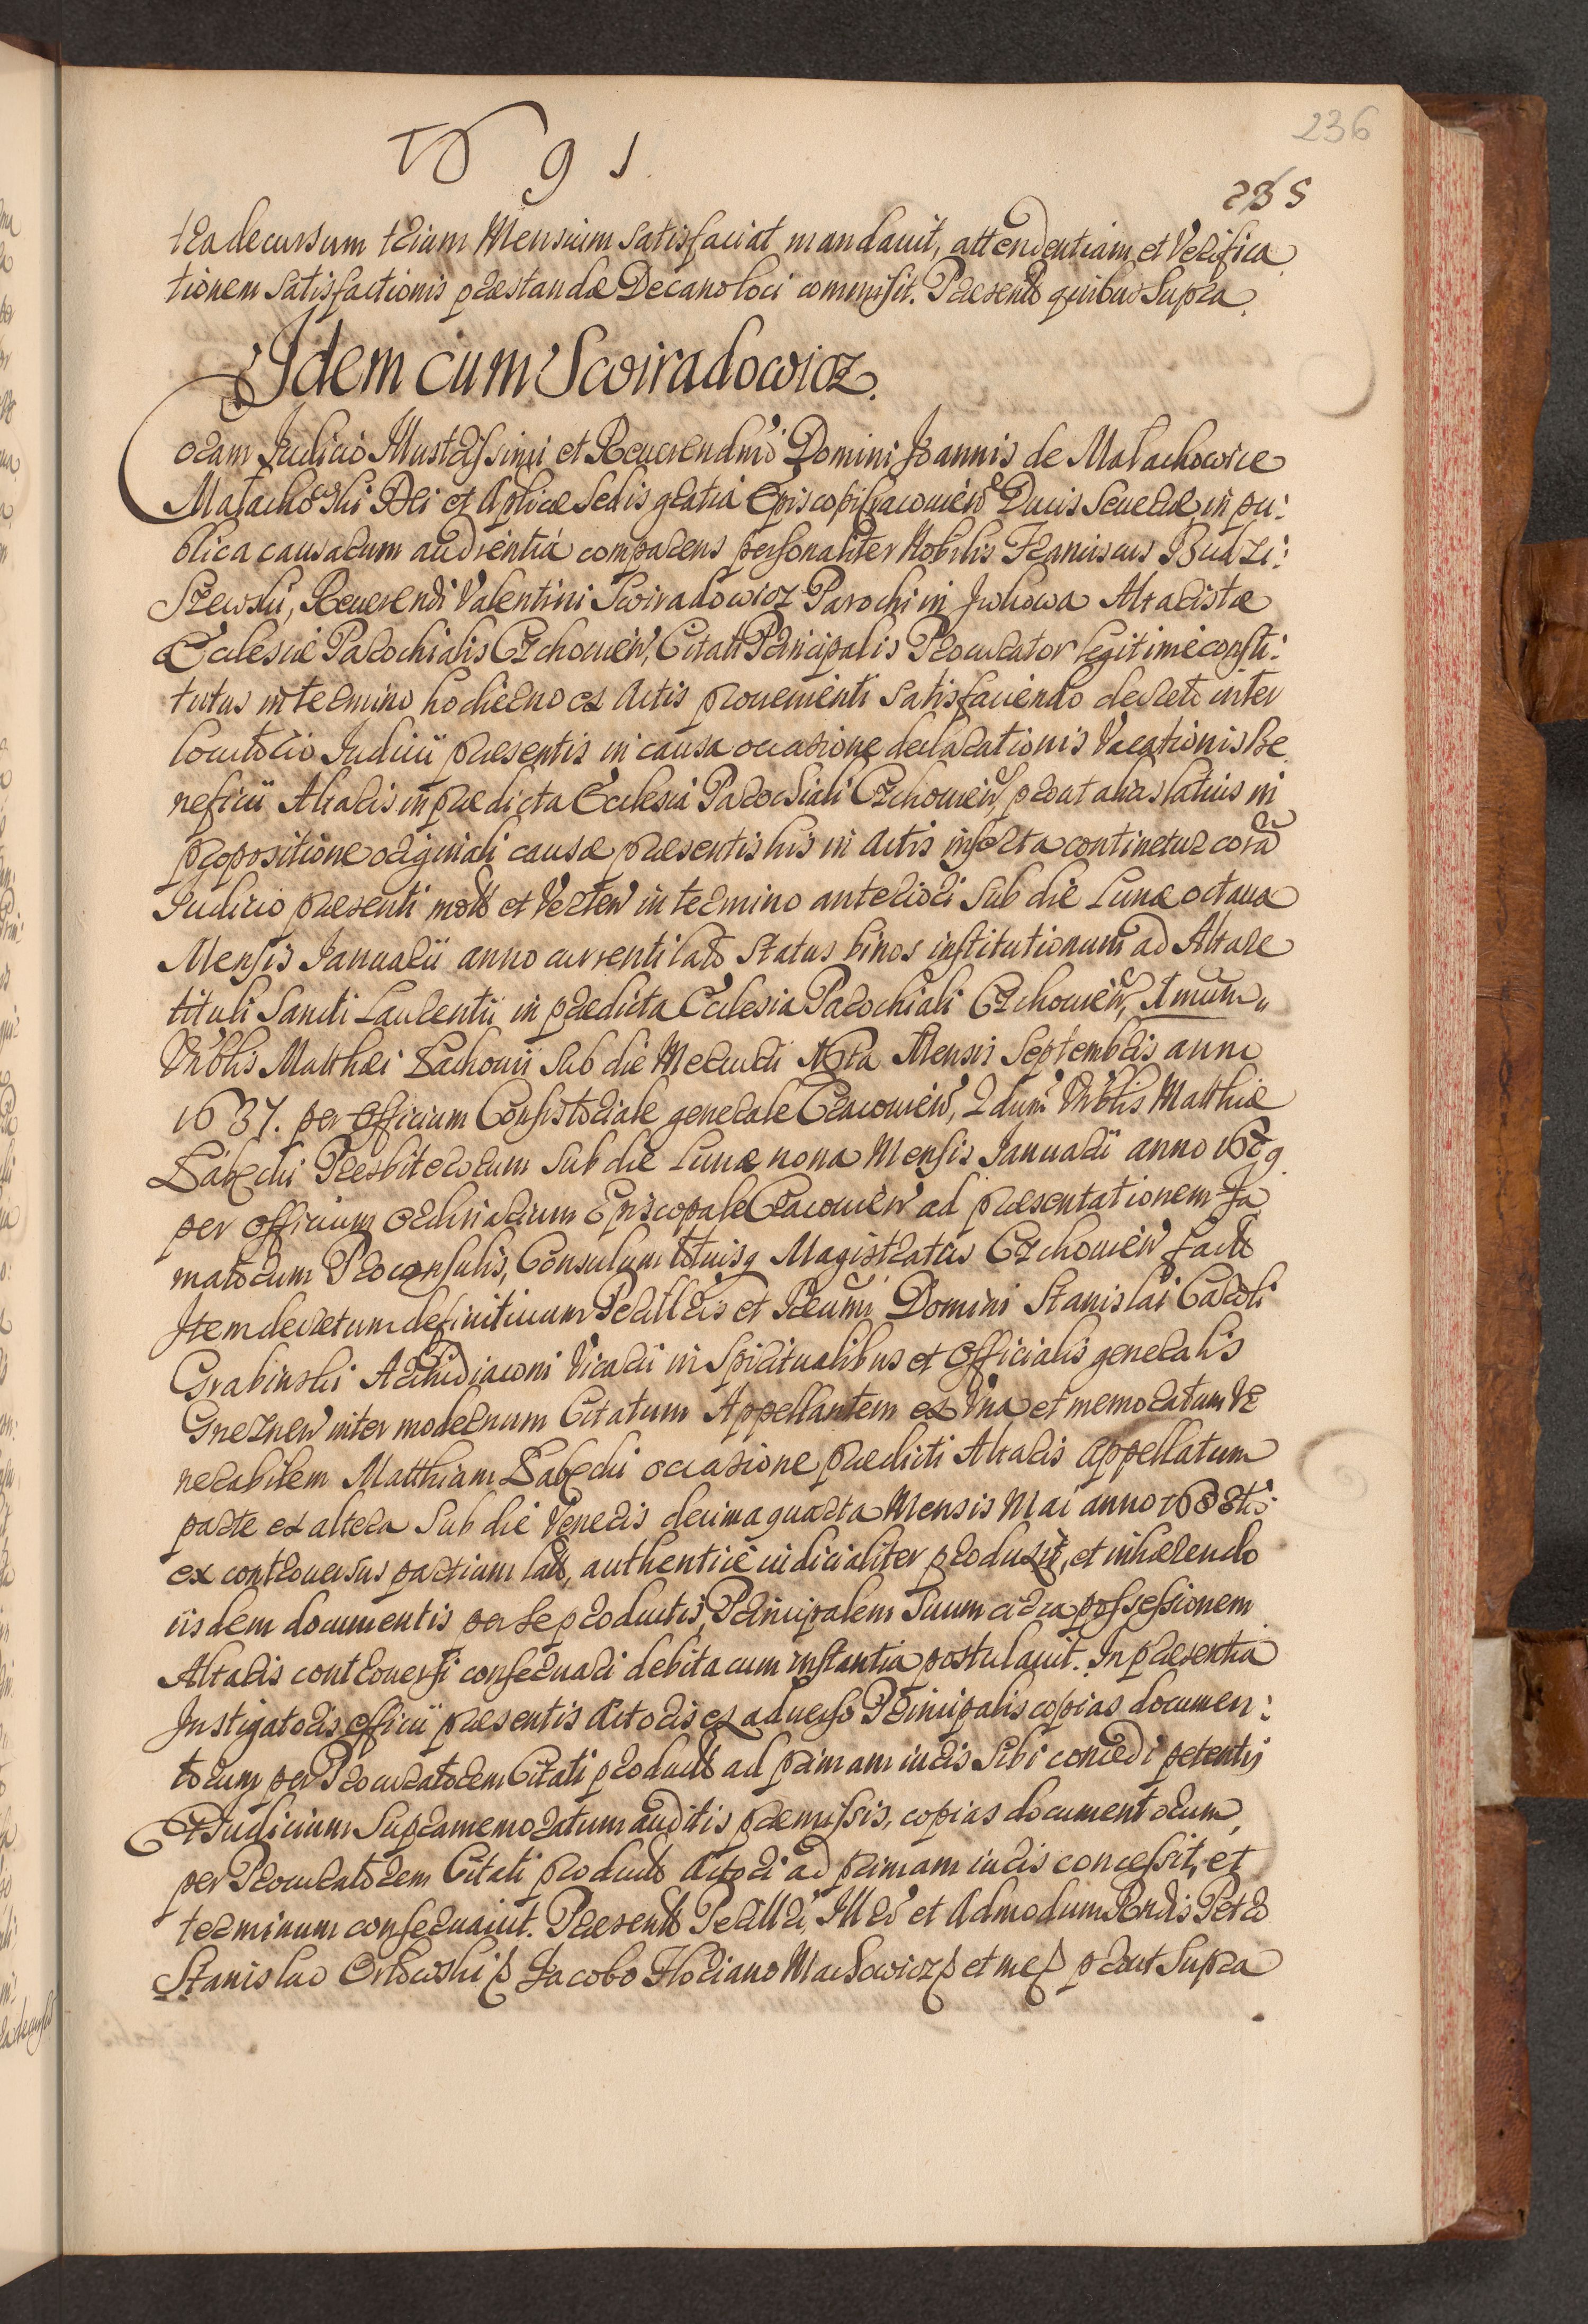 236
1691
235
tra decursum trium Mensium satisfaciat mandavit, attendentiam et Verifica
tionem satisfactionis præstandæ Decano loci commisit. Præsentb quibus Supra.
Idem cum Swiradowicz.
Coram Judicio Illustrissimi et Reverendmi Domini Joannis de Malachowice
Malachowski Dei et Aplicæ Sedis gratia Episcopi Cracovien Ducis Severiæ in pu:
blica causarum audientia comparens personaliter Nobilis Franciscus Budzi:
szewski, Reverendi Valentini Swiradowicz Parochi in Jwkowa Altaristæ
Ecclesiæ Parochialis Czchovien, Citati Principalis Procurator legitime consti:
tutus in termino hodierno ex Actis provenienti satisfaciendo decreto inter
locutorio Judicii præsentis in causa occasione declarationis Vacationis Be
neficii Altaris in prædicta Ecclesia Parochiali Czchovien, prout alias latius in
propositione originali causæ præsentis his in Actis inserta continetur corã
Judicio præsenti mota et Verten in termino anteriori sub die Lunæ octava
Mensis Januarii anno currenti lato status binos institutionum ad Altare
tituli Sancti Laurentii in prædicta Ecclesia Parochiali Czchovien, Amum
Vrblis Matthæi Lachowii sub die Mercurii Mensis Septembris anno
1637. per Officium Consistoriale generale Cracovien, 2dum Vrblis Matthiæ
Łabęcki Presbiterorum sub die Lunæ nona Mensis Januarii anno 1689
per officium ordinarium Episcopale Cracovien ad præsentationem Fa
matorum Proconsulis, Consulum totiusq Magistratus Czchovien factb
Item decretum definitivum Perillris et Rdmi Domini Stanislai Caroli
Grabinski Archidiaconi Vicarii in Spiritualibus et Officialis generalis
Gneznen inter modernum Citatum Appellantem ex Vna et memoratum Ve
nerabilem Matthiam Łabęcki occasione prædicti Altaris Appellatum
parte ex altera sub die Veneris decima quarta Mensis Mai anno
ex controversiis partium latb, authentice iudicialiter produxit, et inhærendo
iisdem documentis per se productis, Principalem suum circa possessionem
Altaris controversi conservari debita cum instantia postulavit. In præsentia
Instigatoris officii præsentis Actoris ex adverso Principalis copias documen:
torum per Procuratorem Citati productb ad primam iuris sibi concedi petentis
Et Judicium supramemoratum auditis præmissis, copias documentorum,
per Procuratorem Citati productb Actori ad primam iuris concessit, et
terminum conservavit. Præsentb Perillri, Illri et Admodum Rndis Petro
Stanislao Orłowski Jacobo Floriano Mackowicz et me prout supra